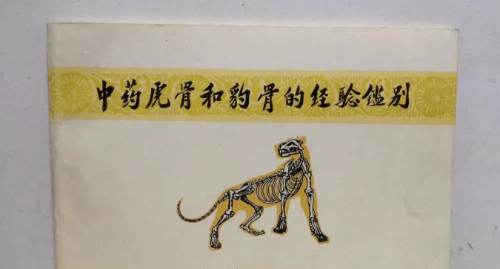 中药虎骨和豹骨的经验鑑别